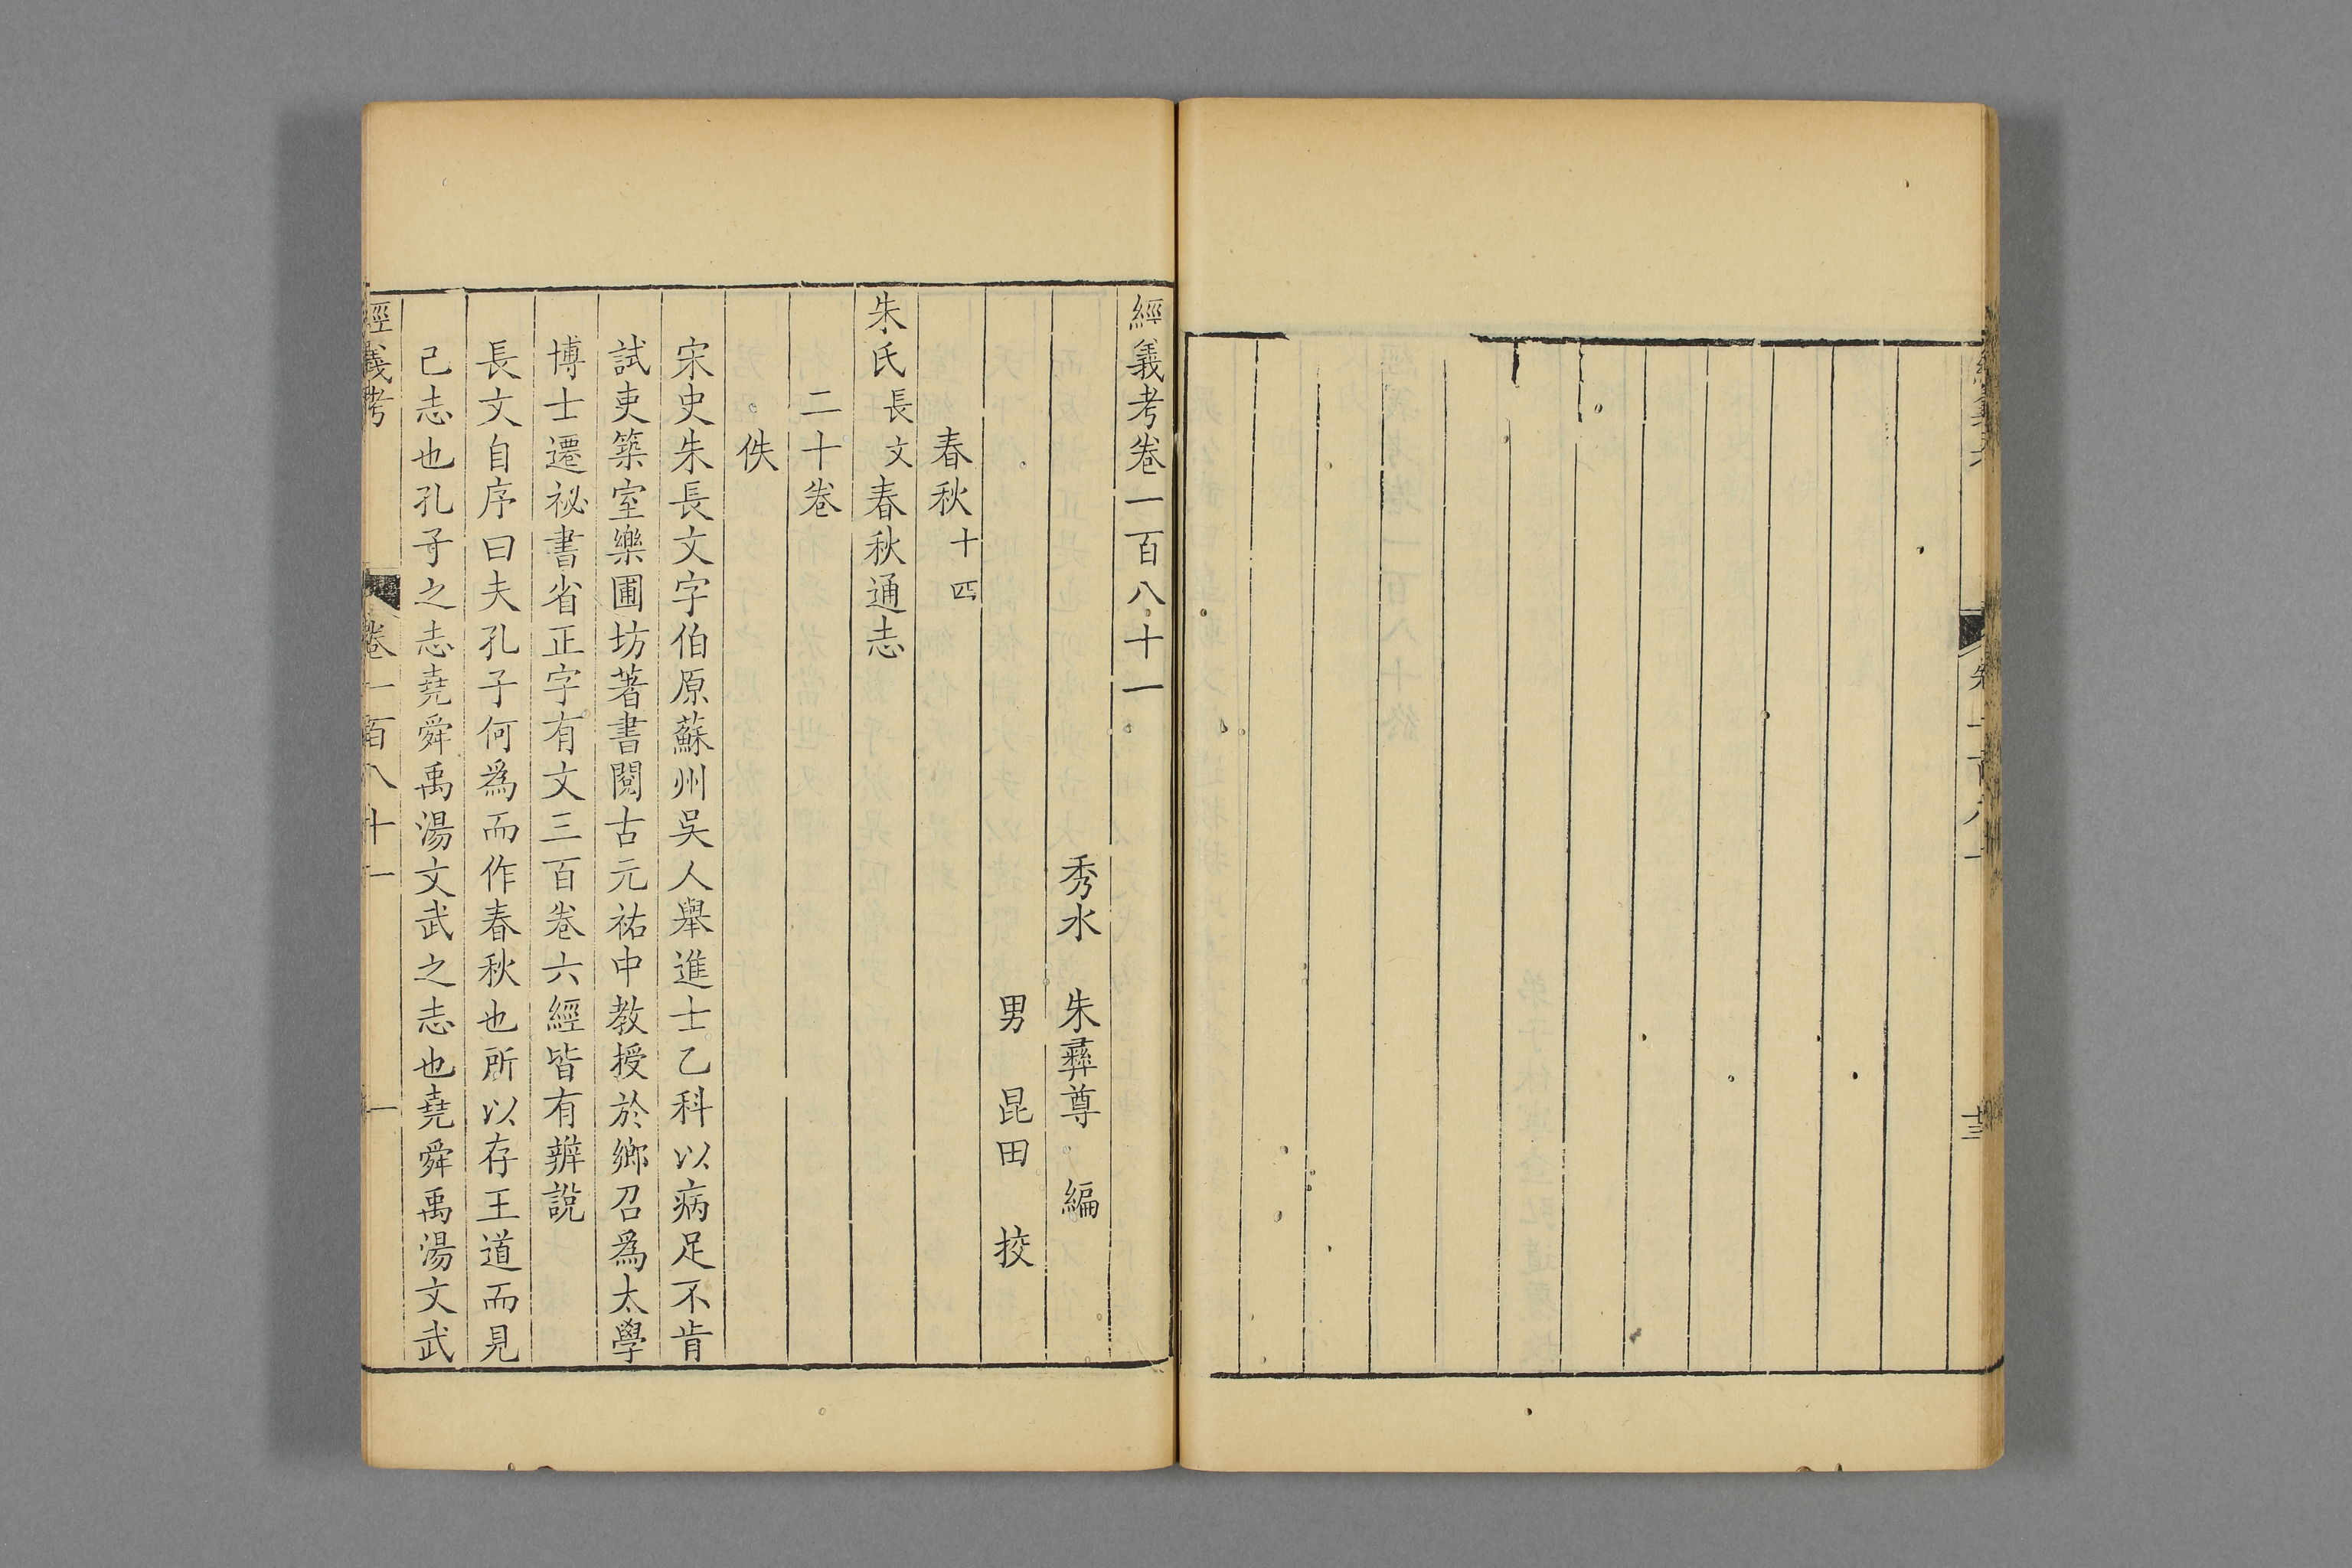 經義考卷一百八十一
秀水 朱彝尊 編
男 昆田 挍
春秋十四
朱氏長文春秋通志
二十卷
佚
宋史朱長文字伯原蘇州吳人舉進士乙科以病足不肯
試吏築室樂圃坊著書閱古元祐中教授於鄉召爲太學
博士遷祕書省正字有文三百卷六經皆有辨說
長文自序曰夫孔子何爲而作春秋也所以存王道而見
己志也孔子之志堯舜禹湯文武之志也堯舜禹湯文武
經義考 卷一百八十一 一